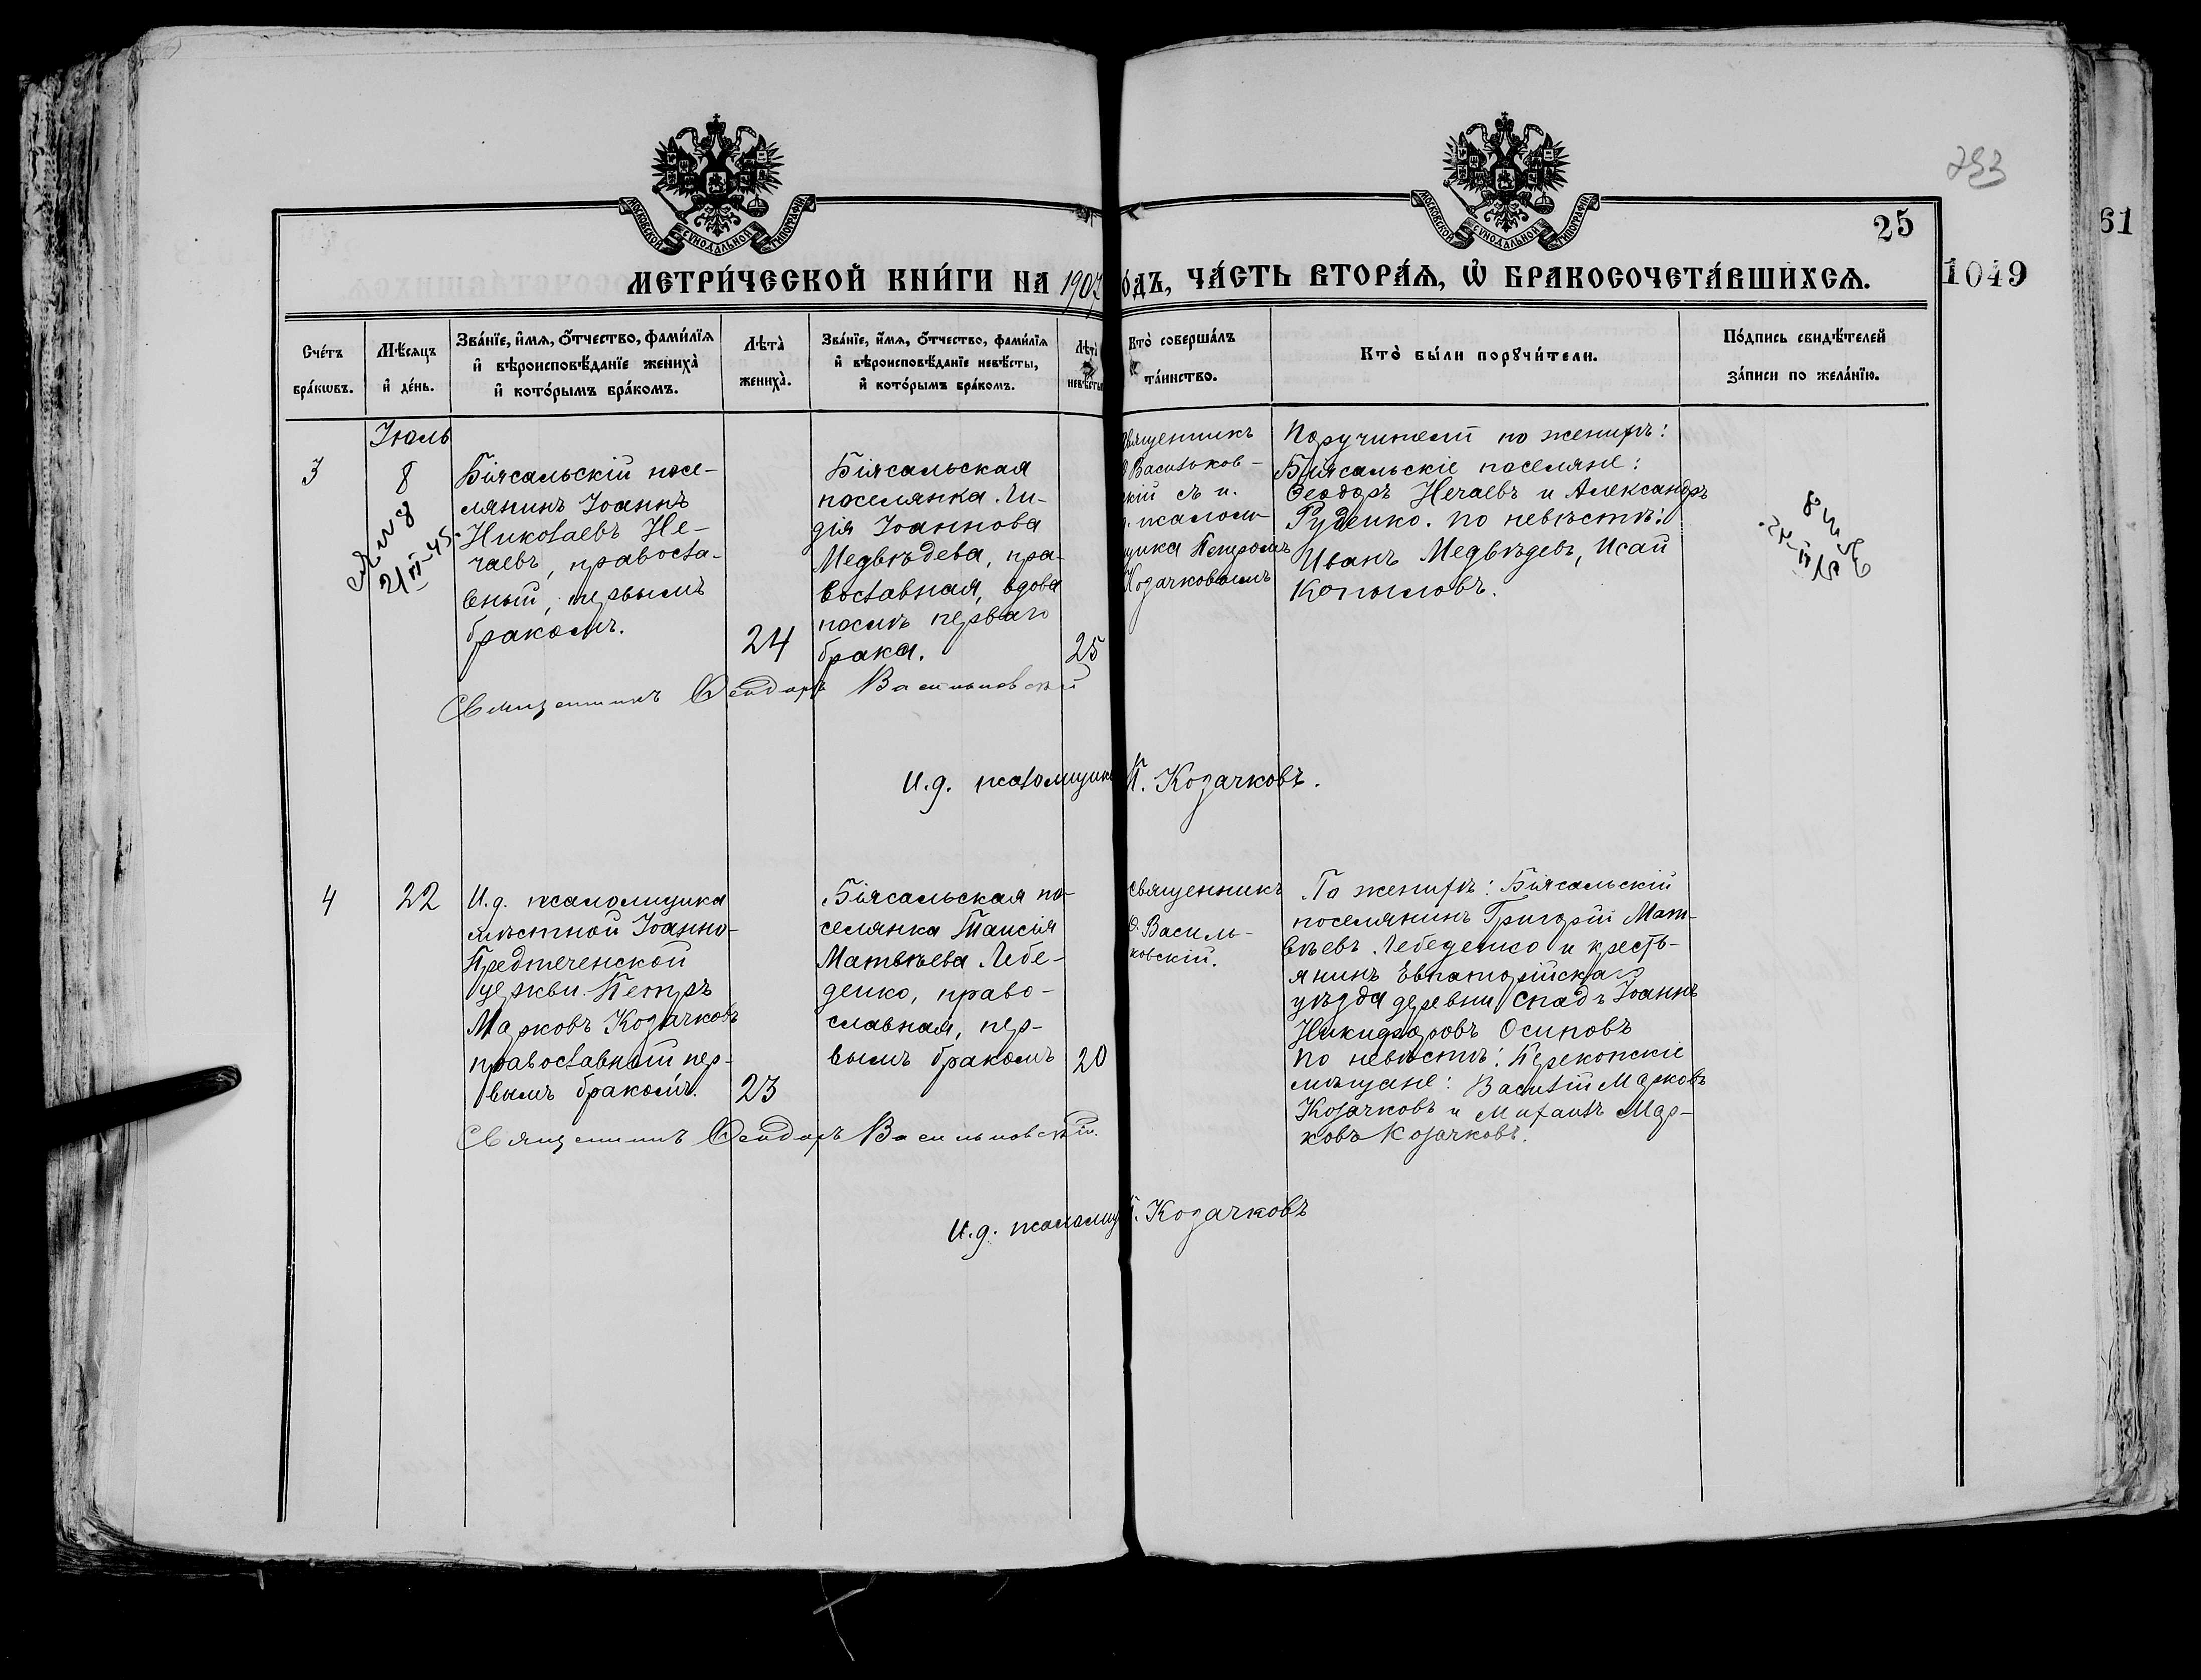 253
МОСКОВСКОЙ СУНОДАЛЬНОЙ ТИПОГРАФІИ
МОСКОВСКОЙ СУНОДАЛЬНОЙ ТИПОГРАФІИ
25
61
1049
МЕТРИ́ЧЕСКОЙ КНИ́ГИ НА 1907 О́ДЪ, ЧА́СТЬ ВТОРА́Я, Ѡ҆ БРАКОСОЧЕТА́ВШИХСѦ.
Сче́тъ бра́кѡвъ.
Мѣ́сяцъ и҆ де́нь.
Зва́нїе, и҆́мѧ, ѻ҆́тчество, фами́лїѧ
и҆ вѣроисповѣ́данїе жениха̀
и҆ кото́рымъ бра́комъ.
Лѣта̀ жениха̀.
Зва́нїе, и҆́мѧ, ѻ҆́тчество, фами́лїѧ
и҆ вѣроисповѣ́данїе невѣ́сты,
и҆ кото́рымъ бра́комъ.
Лѣта̀ невѣ́сты
Кто̀ соверша́лъ
та́инство.
Кто̀ бы́ли порꙋчи́тели.
По́дпись свидѣ́телей
за́писи по жела́нїю.
Іюль
3
8
21 III-45.
Біясальскій посе-
лянинъ Іоаннъ
Николаевъ Не-
чаевъ, правосла-
вный, первымъ
бракомъ.
24
Біясальская
поселянка Ли-
дія Іоаннова
Медвѣдева, пра-
вославная, вдова
послѣ перваго
брака.
25
священникъ
Ѳ. Васильков-
скій съ и.
д. псалом-
щика Петромъ
Козачковымъ
Поручители по женихѣ:
Біясальскіе поселяне:
Ѳеодоръ Нечаевъ и Александръ
Руденко. По невѣстѣ:
Иванъ Медвѣдевъ, Исай
Копыловъ.
Священникъ Ѳеодоръ Васильковскій
И.д. псаломщика П. Козачковъ.
4
22
И.д. псаломщика
мѣстной Іоанно-
Предтеченской
церкви Петръ
Марковъ Козачковъ
православный пер-
вымъ бракомъ.
23
Біясальская по-
селянка Таисія
Матвѣева Лебе-
денко, право-
славная, пер-
вымъ бракомъ
20
священникъ
Ѳ. Василь-
ковскій.
По женихѣ: Біясальскій
поселянинъ Григорій Мат-
вѣевъ Лебеденко и кресть-
янинъ Евпаторійскаго
уѣзда деревни Спадъ Іоаннъ
Никифоровъ Осиповъ
По невѣстѣ: Перекопскіе
мѣщане: Василій Марковъ
Козачковъ и Михаилъ Мар-
ковъ Козачковъ.
Священникъ Ѳеодоръ Васильковскій.
И.д. псаломщ П. Козачковъ